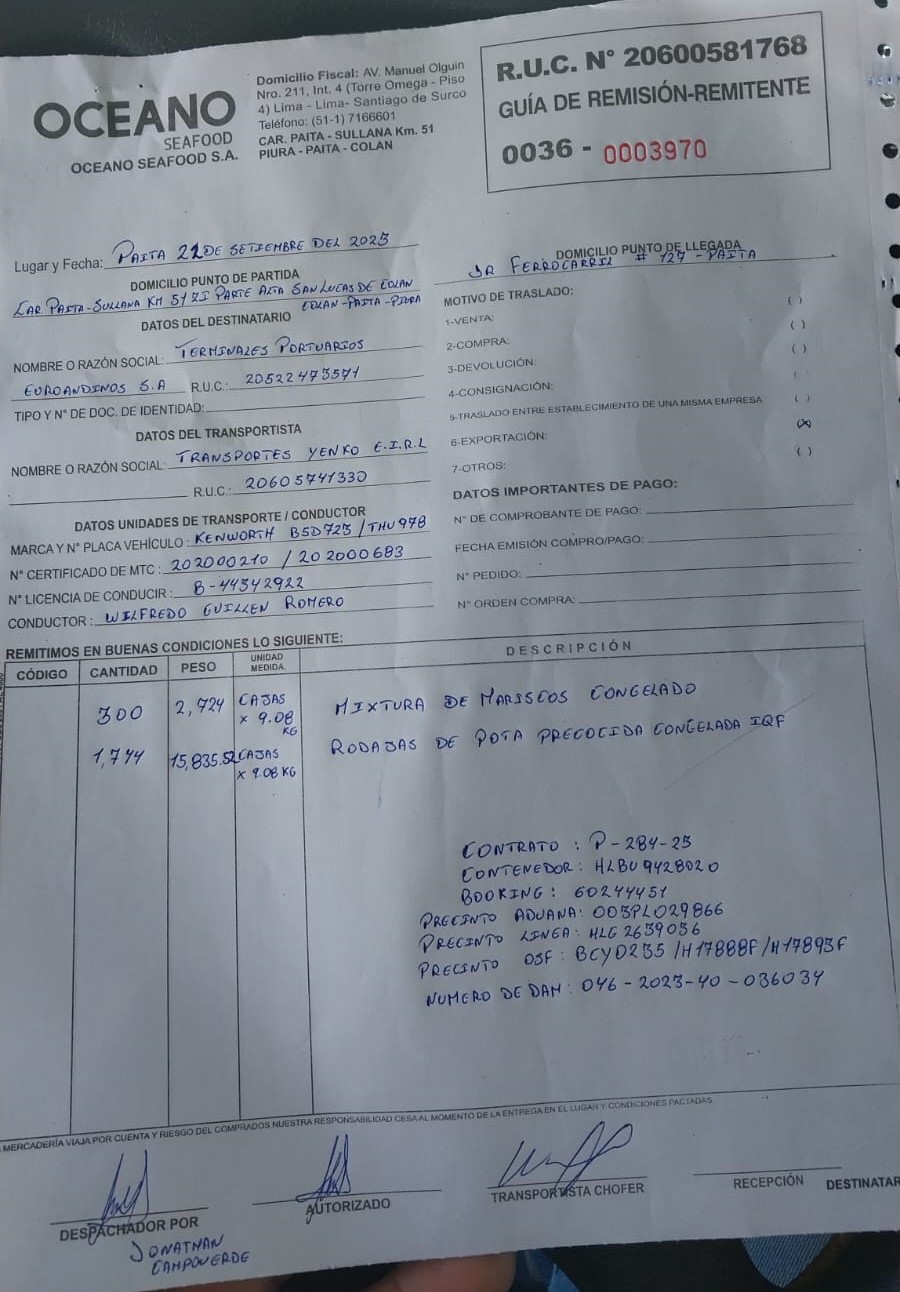 OCEANO
SEAFOOD
OCEANO SEAFOOD S.A.
Domicilio Fiscal: AV. Manuel Olguin
Nro. 211, Int. 4 (Torre Omega - Piso
4) Lima - Lima- Santiago de Surco
Teléfono: (51-1) 7166601
CAR. PAITA - SULLANA Km. 51
PIURA - PAITA - COLAN
R.U.C. N° 20600581768
GUÍA DE REMISIÓN-REMITENTE
0036 - 0003970
Lugar y Fecha: PAITA 22 DE SETIEMBRE DEL 2023
DOMICILIO PUNTO DE PARTIDA
CAR PAITA-SULLANA KM 51 ZI PARTE ALTA SAN LUCAS DE COLAN
COLAN-PAITA-PIURA
DATOS DEL DESTINATARIO
NOMBRE O RAZÓN SOCIAL: TERMINALES PORTUARIOS
EUROANDINOS S.A R.U.C.: 20522473571
TIPO Y N° DE DOC. DE IDENTIDAD:
DATOS DEL TRANSPORTISTA
NOMBRE O RAZÓN SOCIAL: TRANSPORTES YENKO E.I.R.L
R.U.C.: 20605741330
DATOS UNIDADES DE TRANSPORTE / CONDUCTOR
MARCA Y N° PLACA VEHÍCULO: KENWORTH B5D725 / THU978
N° CERTIFICADO DE MTC: 202000210 / 202000683
N° LICENCIA DE CONDUCIR: B-44342922
CONDUCTOR: WILFREDO GUILLEN ROMERO
DOMICILIO PUNTO DE LLEGADA
JR FERROCARRIL # 127 - PAITA
MOTIVO DE TRASLADO:
1-VENTA: ( )
2-COMPRA: ( )
3-DEVOLUCIÓN: ( )
4-CONSIGNACIÓN: ( )
5-TRASLADO ENTRE ESTABLECIMIENTO DE UNA MISMA EMPRESA ( )
6-EXPORTACIÓN: (X)
7-OTROS: ( )
DATOS IMPORTANTES DE PAGO:
N° DE COMPROBANTE DE PAGO:
FECHA EMISIÓN COMPRO/PAGO:
N° PEDIDO:
N° ORDEN COMPRA:
REMITIMOS EN BUENAS CONDICIONES LO SIGUIENTE:
CÓDIGO CANTIDAD PESO UNIDAD MEDIDA. DESCRIPCIÓN
300 2,724 CAJAS x 9.08 KG MIXTURA DE MARISCOS CONGELADO
1,744 15,835.52 CAJAS x 9.08 KG RODAJAS DE POTA PRECOCIDA CONGELADA IQF
CONTRATO : P-284-23
CONTENEDOR: HLBU9428020
BOOKING: 60244451
PRECINTO ADUANA: 003PL029866
PRECINTO LINEA: HLG2639056
PRECINTO OSF: BCYD235 /H17888F/H17893F
NUMERO DE DAM: 046-2023-40-036034
MERCADERÍA VIAJA POR CUENTA Y RIESGO DEL COMPRADOS NUESTRA RESPONSABILIDAD CESA AL MOMENTO DE LA ENTREGA EN EL LUGAR Y CONDICIONES PACTADAS.
DESPACHADOR POR
JONATHAN
CAMPOVERDE
AUTORIZADO
TRANSPORTISTA CHOFER
RECEPCIÓN
DESTINATAR